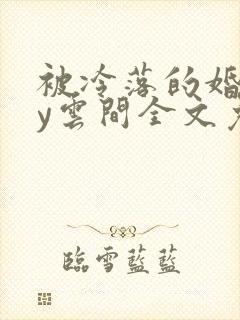 被冷落的婚
y雲間全文
臨雪藍藍